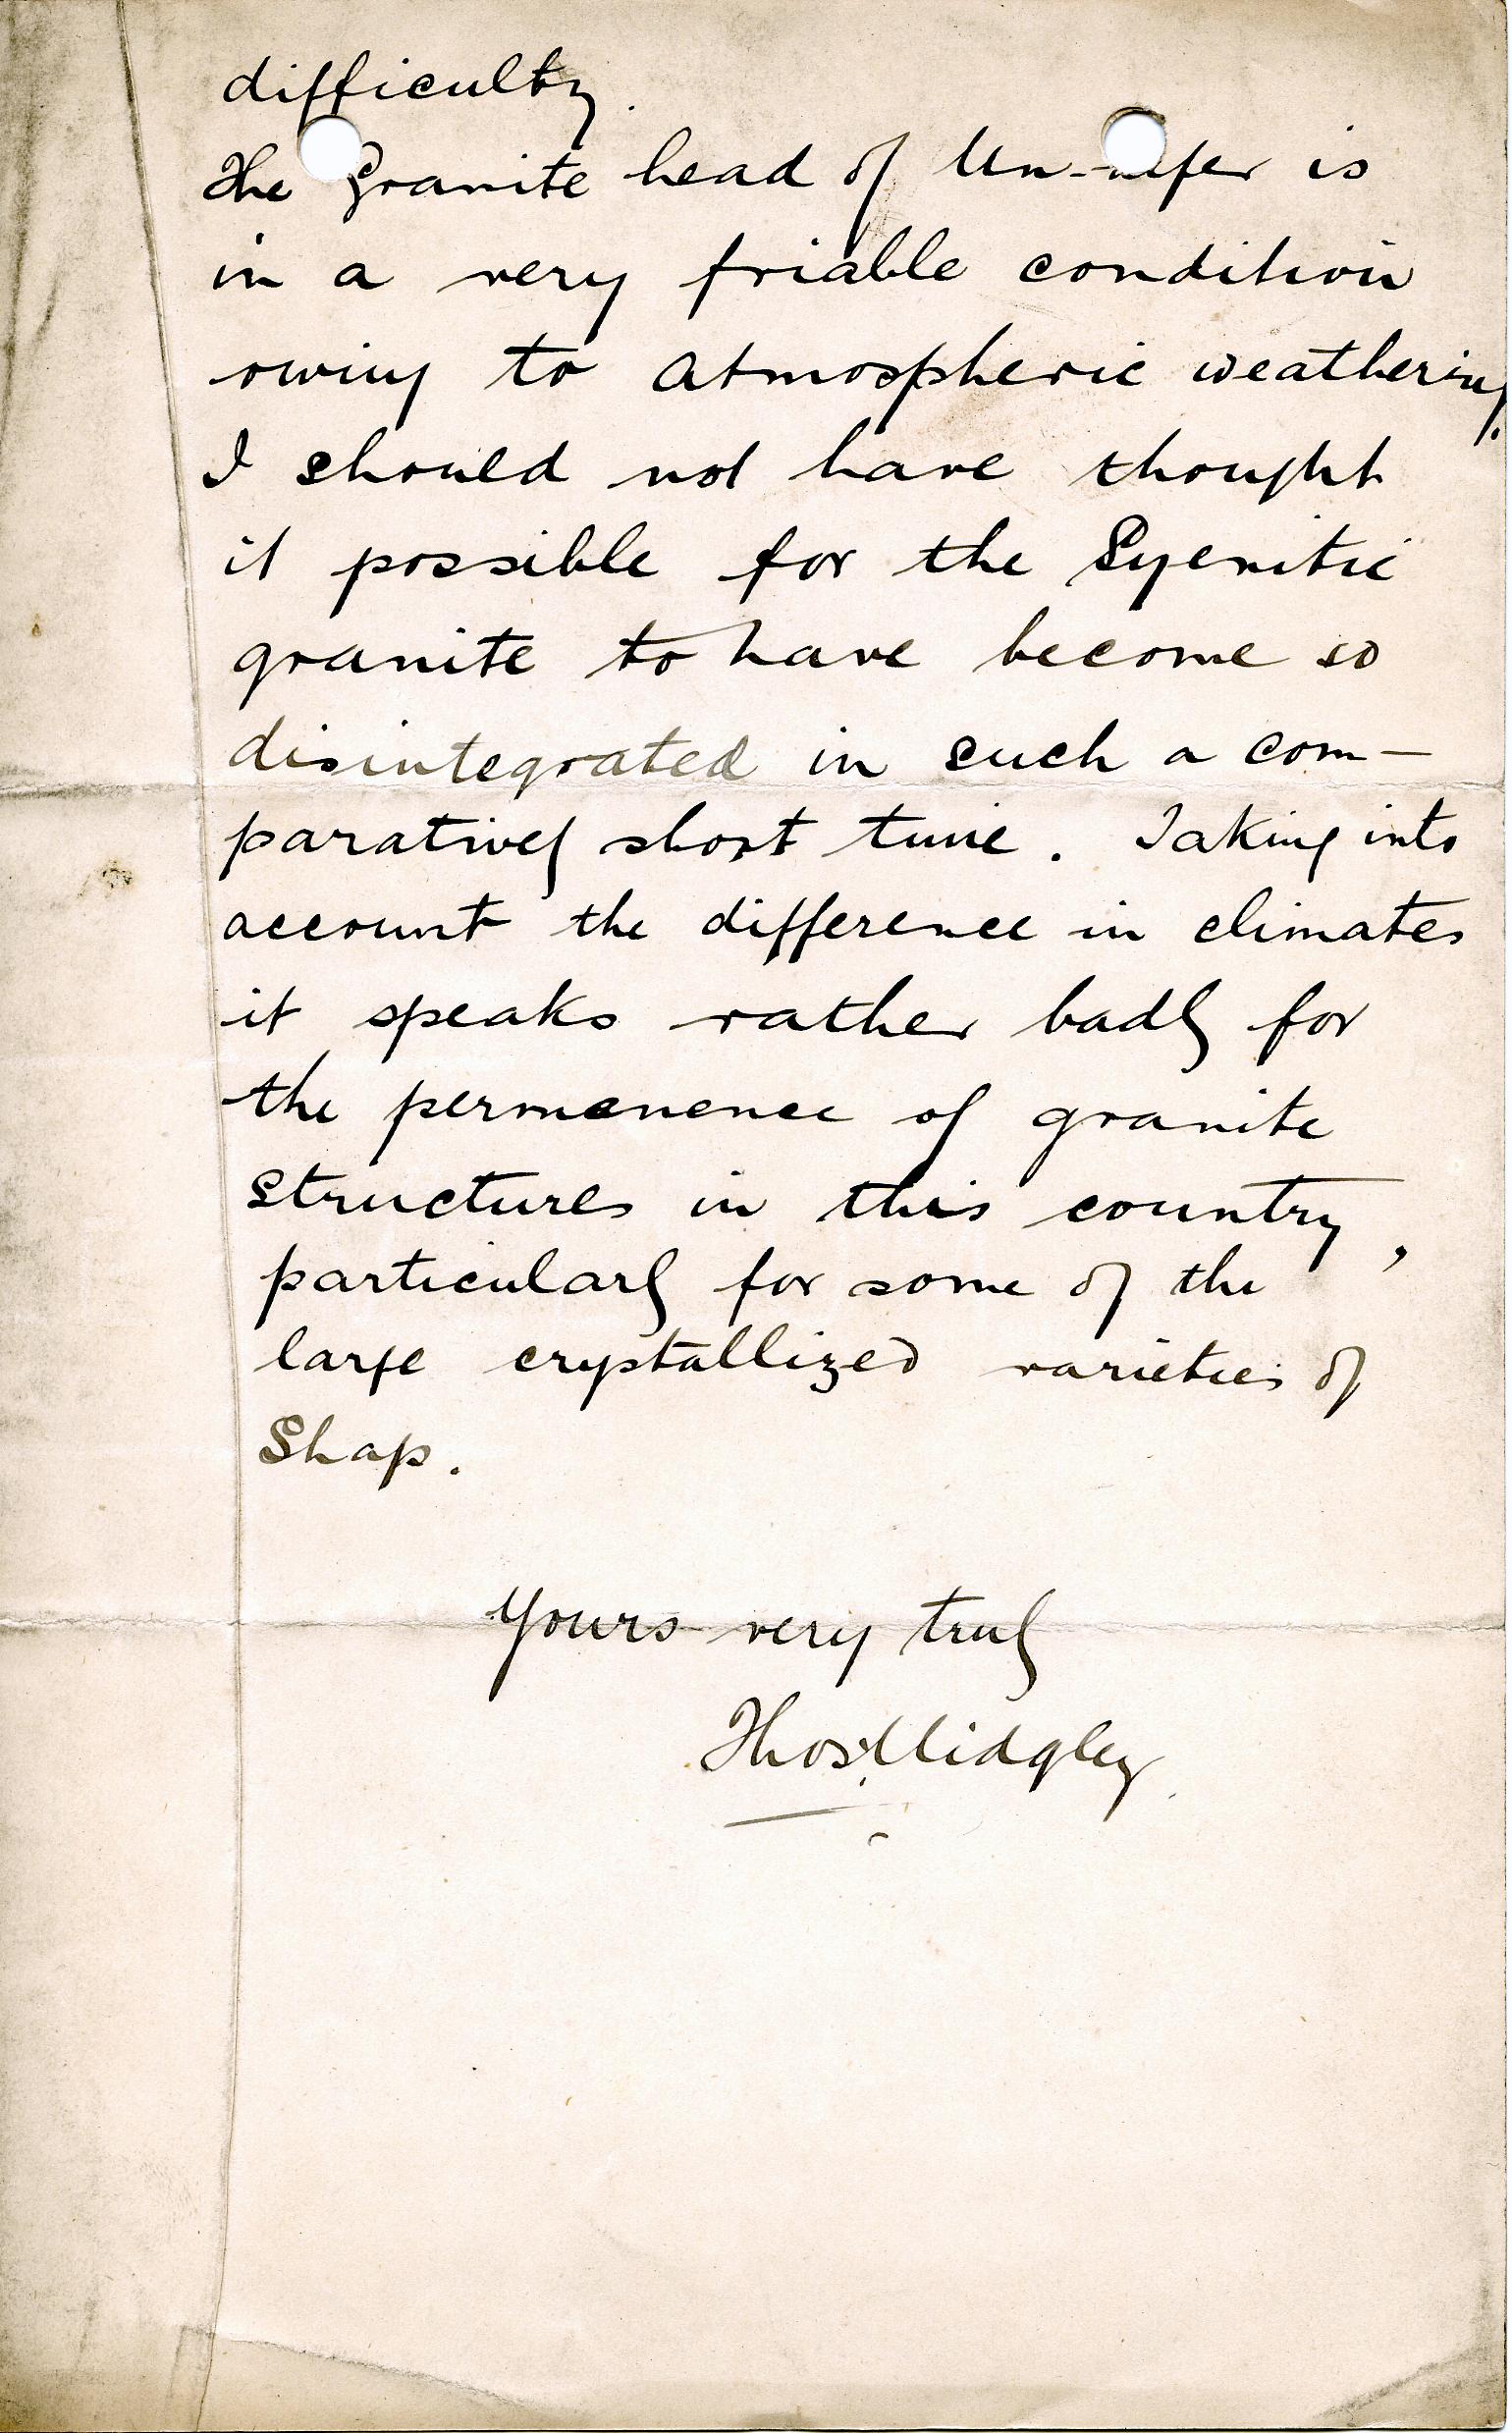 difficulty.
The Granite head of Un-nefer is
in a very friable condition
owing to atmospheric weathering.
I should not have thought
it possible for the Syenitic
granite to have become so
disintegrated in such a com-
paratively short time. Taking into
account the difference in climates
it speaks rather badly for
the permanence of granite
structures in this country,
particularly for some of the
large crystallized varieties of
Shap.
Yours very truly
Thos. Midgley